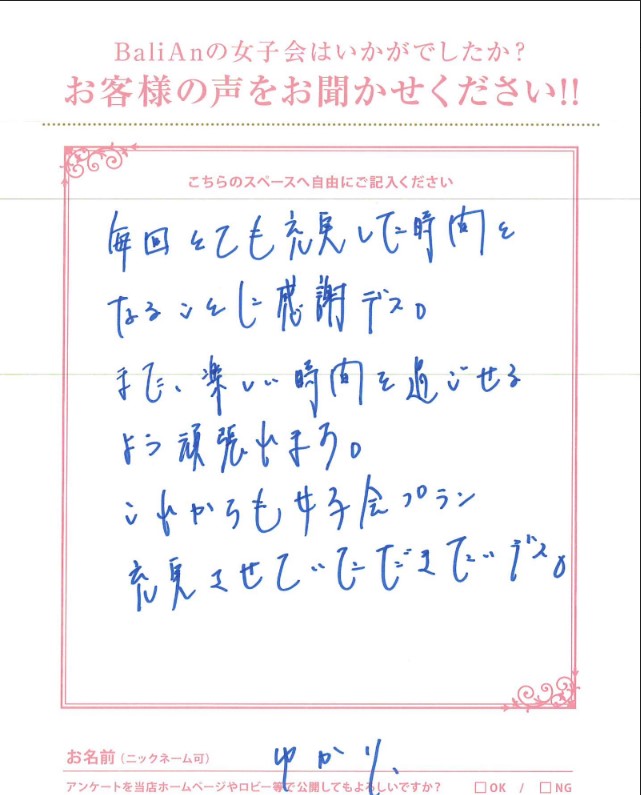 BaliAnの女子会はいかがでしたか?
お客様の声をお聞かせください!!
こちらのスペースへ自由にご記入ください
毎回とても充実した時間と
なることに感謝デス。
また、楽しい時間を過ごせる
よう頑張れます。
これからも女子会プラン
充実させていただきたいデス。
お名前(ニックネーム可) ゆかり
アンケートを当店ホームページやロビー等で公開してもよろしいですか? □OK / □NG